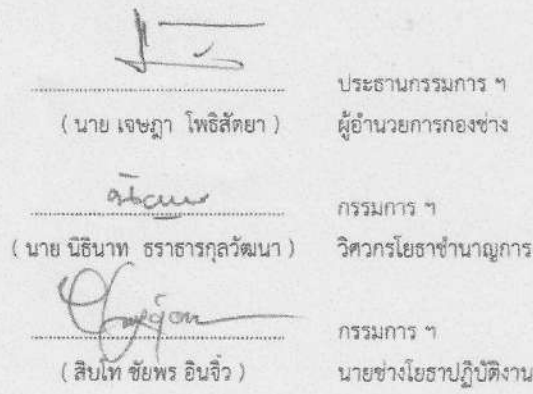 ประธานกรรมการ ฯ
( นาย เจษฎา โพธิสัตยา ) ผู้อำนวยการกองช่าง
กรรมการ ฯ
( นาย นิธินาท ธราธารกุลวัฒนา ) วิศวกรโยธาชำนาญการ
กรรมการ ฯ
( สิบโท ชัยพร อินจิ๋ว ) นายช่างโยธาปฏิบัติงาน